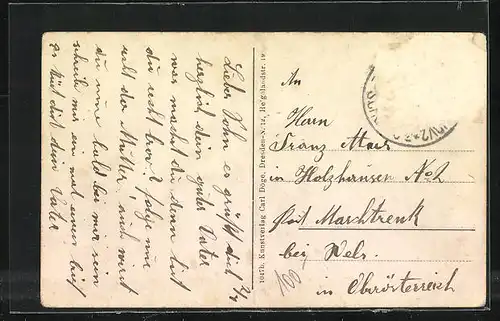 Lieber Sohn es grüßt dich
herzlich dein guter Vater
was machst du denn bist
du recht brav? folge nur
der Mutter, auch wirst
du nun bald bei mir sein
schreib mir ein mal einen Brief
es küßt dich dein Vater
10476. Kunstverlag Carl Döge, Dresden-N. 14, Helgolandstr. 19.
An
Herrn
Franz
in Holzhausen No 2
Post Marchtrenk
bei Wels.
in Oberösterreich